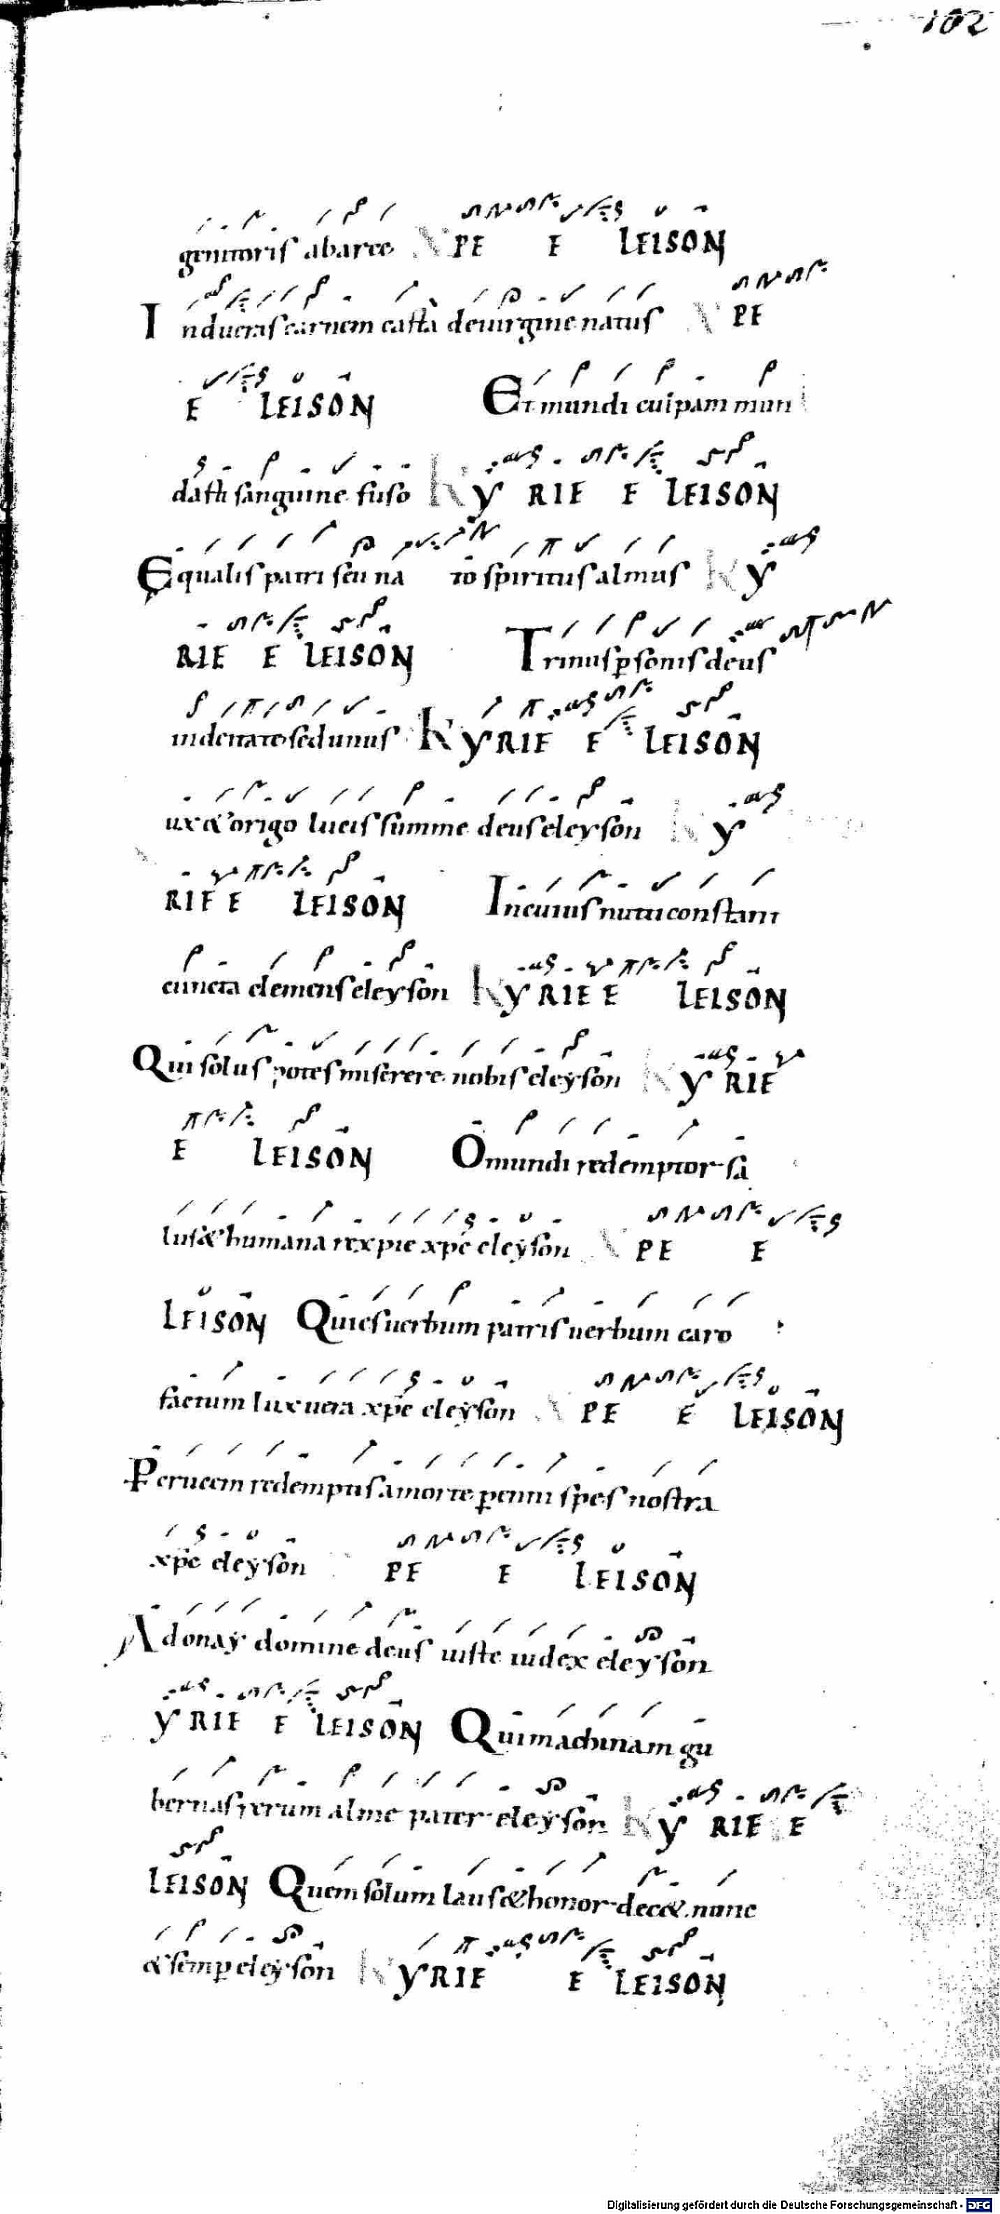 102
genitoris ab arce XPE E LEISON
Indueras carnem casta de virgine natus XPE
E LEISON Et mundi culpam mun
dasti sanguine fuso KY RIE E LEISON
Equalis patri seu na to spiritus almus KY
RIE E LEISON Trinus psonis deus
in deitate sed unus KYRIE E LEISON
ux & origo lucis summe deus eleyson KY
RIE E LEISON In cuius nutu constant
cuncta clemens eleyson KYRIE E LEISON
Qui solus potes miserere nobis eleyson KY RIE
E LEISON O mundi redemptor sa
lus & humana rex pie xpe eleyson XPE E
LEISON Qui es verbum patris verbum caro
factum lux vera xpe eleyson XPE E LEISON
P crucem redemptis a morte penni spes nostra
xpe eleyson PE E LEISON
Adonay domine deus iuste iudex eleyson
YRIE E LEISON Qui machinam gu
bernas rerum alme pater eleyson KY RIE E
LEISON Quem solum laus & honor dec& nunc
& semp eleyson KYRIE E LEISON
Digitalisierung gefördert durch die Deutsche Forschungsgemeinschaft - DFG